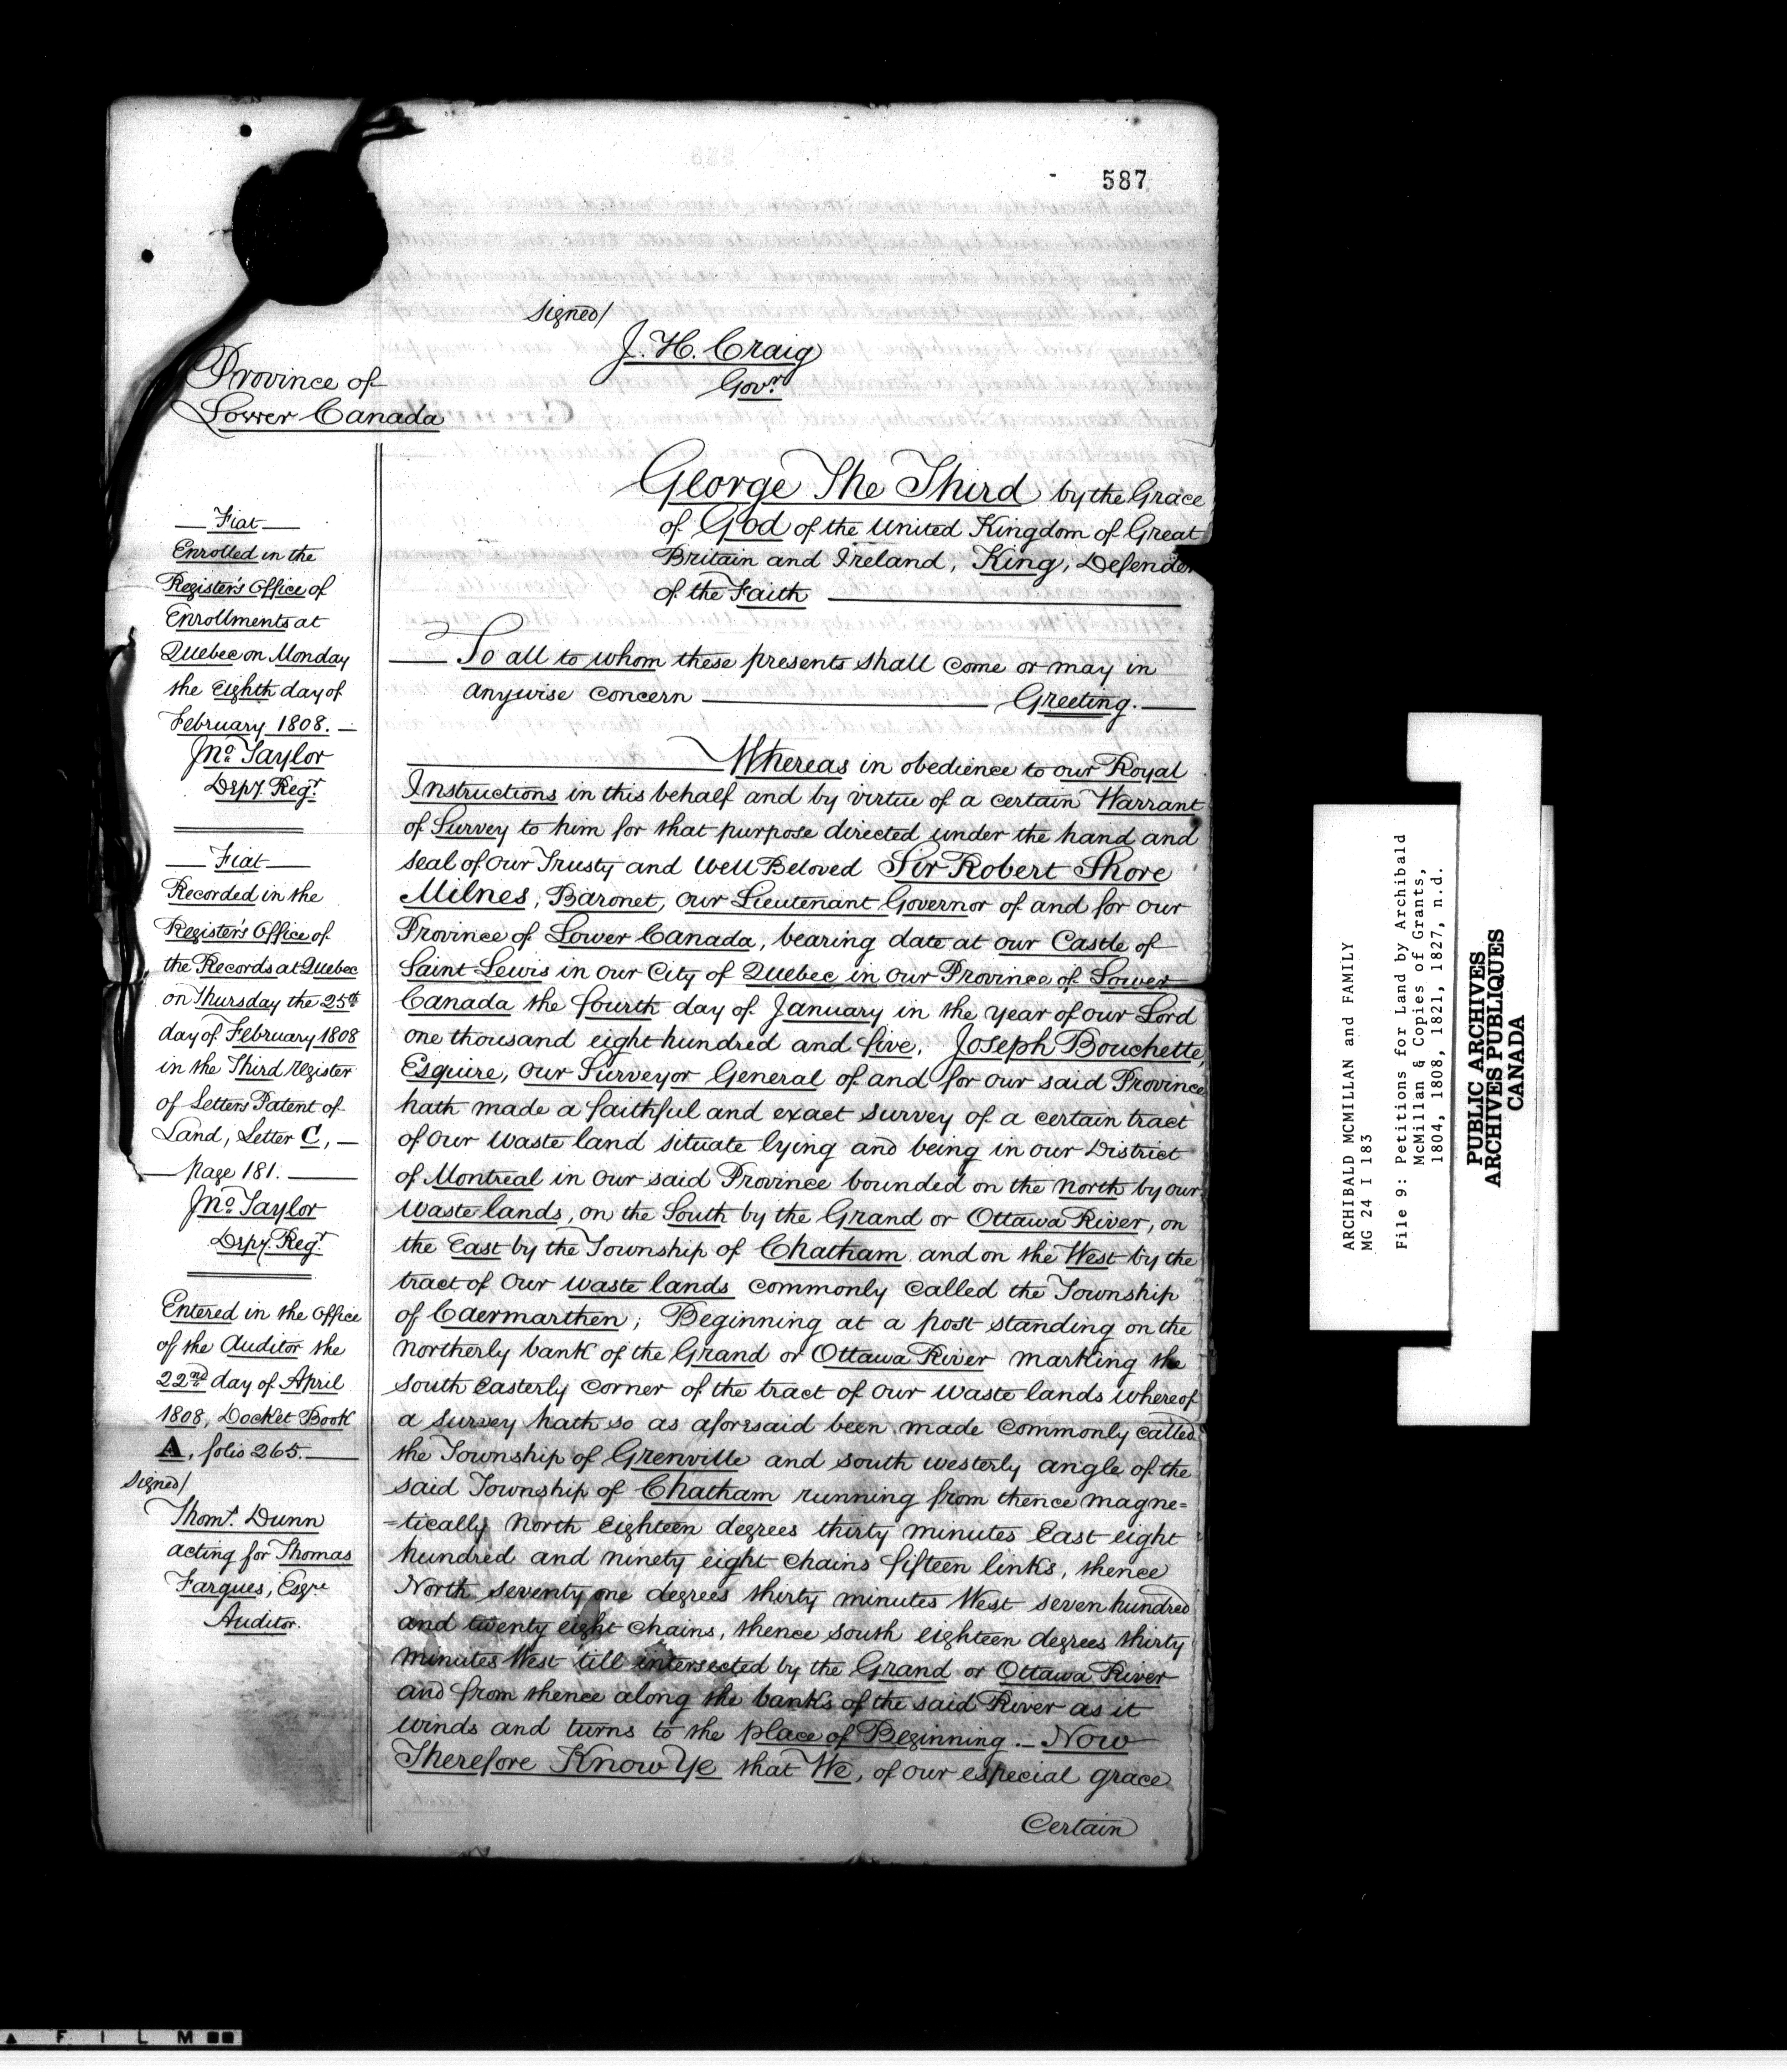 587
Signed/
J. H. Craig
Govr.
Province of
Lower Canada
George The Third by the Grace
of God of the United Kingdom of Great
Britain and Ireland, King, Defender
of the Faith
To all to whom these presents shall come or may in
anywise concern Greeting.
Whereas in obedience to our Royal
Instructions in this behalf and by virtue of a certain Warrant
of Survey to him for that purpose directed under the hand and
seal of our Trusty and Well Beloved Sir Robert Shore
Milnes, Baronet, our Lieutenant Governor of and for our
Province of Lower Canada, bearing date at our Castle of
Saint Lewis in our City of Quebec in our Province of Lower
Canada the fourth day of January in the year of our Lord
one thousand eight hundred and five, Joseph Bouchette,
Esquire, our Surveyor General of and for our said Province
hath made a faithful and exact survey of a certain tract
of our waste land situate lying and being in our District
of Montreal in our said Province bounded on the north by our
waste lands, on the South by the Grand or Ottawa River, on
the East by the Township of Chatham and on the West by the
tract of our waste lands commonly called the Township
of Caermarthen; Beginning at a post standing on the
northerly bank of the Grand or Ottawa River marking the
south easterly corner of the tract of our waste lands whereof
a survey hath so as aforesaid been made commonly called
the Township of Grenville and south westerly angle of the
said Township of Chatham running from thence magne=
=tically North Eighteen degrees thirty minutes East eight
hundred and ninety eight chains fifteen links, thence
North seventy one degrees thirty minutes West seven hundred
and twenty eight chains, thence south eighteen degrees thirty
minutes West till intersected by the Grand or Ottawa River
and from thence along the banks of the said River as it
winds and turns to the place of Beginning. — Now
Therefore Know Ye that We, of our especial grace
Certain
Fiat
Enrolled in the
Register's Office of
Enrollments at
Quebec on Monday
the Eighth day of
February 1808. —
Jno. Taylor
Depy. Regr.
Fiat
Recorded in the
Register's Office of
the Records at Quebec
on Thursday the 25th
day of February 1808
in the Third register
of Letters Patent of
Land, Letter C, —
page 181.
Jno. Taylor
Depy. Regr.
Entered in the Office
of the Auditor the
22nd day of April
1808, Docket Book
A, folio 265.
Signed/
Thos. Dunn
acting for Thomas
Fargues, Esqre
Auditor.
ARCHIBALD MCMILLAN and FAMILY
MG 24 I 183
File 9: Petitions for Land by Archibald
McMillan & Copies of Grants,
1804, 1808, 1821, 1827, n.d.
PUBLIC ARCHIVES
ARCHIVES PUBLIQUES
CANADA
A FILM